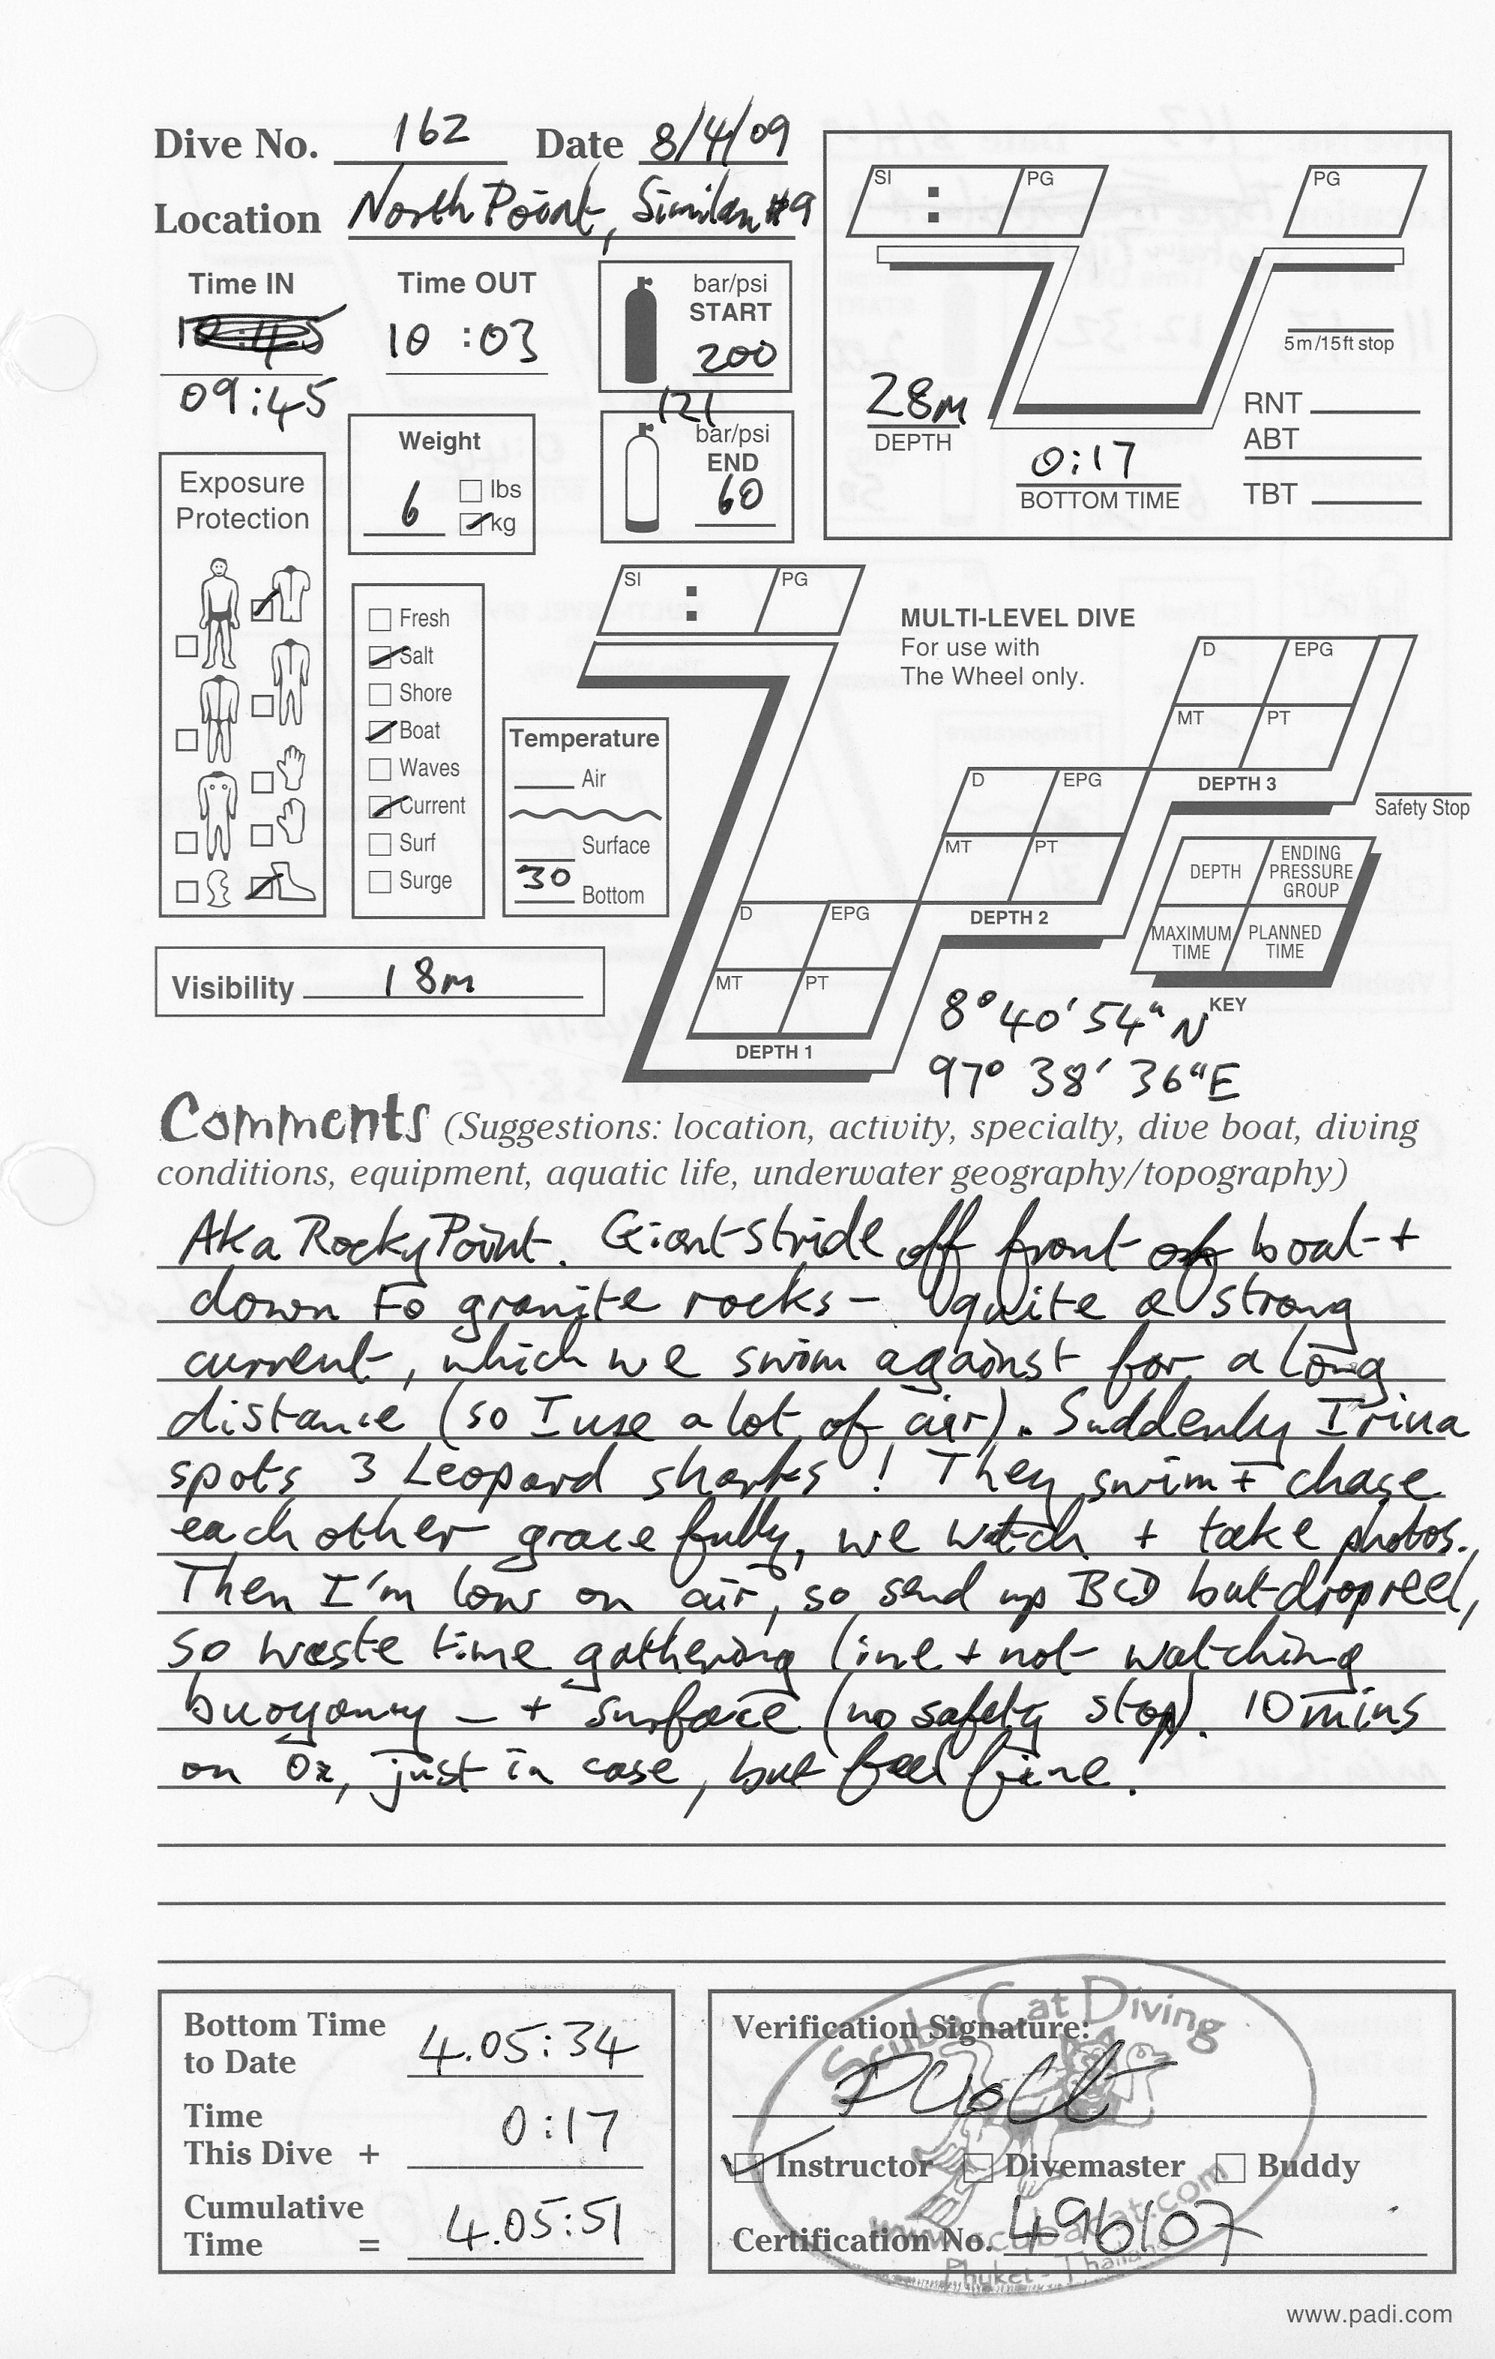 Dive No. 162 Date 8/4/09
Location North Point, Similan #9
Time IN Time OUT
10:45 10:03
09:45
bar/psi
START
200
121
bar/psi
END
60
SI : PG PG
5m/15ft stop
28m
DEPTH
0:17
BOTTOM TIME
RNT
ABT
TBT
Weight
6 lbs
kg
Exposure
Protection
Fresh
Salt
Shore
Boat
Waves
Current
Surf
Surge
Temperature
Air
Surface
30 Bottom
Visibility 18m
SI : PG
MULTI-LEVEL DIVE
For use with
The Wheel only.
D EPG
MT PT
DEPTH 3
Safety Stop
D EPG
MT PT
DEPTH 2
D EPG
MT PT
DEPTH 1
DEPTH ENDING PRESSURE GROUP
MAXIMUM TIME PLANNED TIME
KEY
8° 40' 54" N
97° 38' 36" E
Comments (Suggestions: location, activity, specialty, dive boat, diving
conditions, equipment, aquatic life, underwater geography/topography)
Aka Rocky Point. Giant Stride off front of boat +
down to granite rocks – quite a strong
current, which we swim against for a long
distance (so I use a lot of air). Suddenly Irina
spots 3 Leopard sharks! They swim + chase
each other gracefully, we watch + take photos.
Then I'm low on air, so send up BCD but drop reel,
so waste time gathering line + not watching
buoyancy – + surface (no safety stop). 10 mins
on O2, just in case, but feel fine!
Bottom Time
to Date 4.05:34
Time
This Dive + 0:17
Cumulative
Time = 4.05:51
Scuba Cat Diving
Verification Signature:
Instructor Divemaster Buddy
Certification No. 496107
www.scubacat.com
Phuket - Thailand
www.padi.com